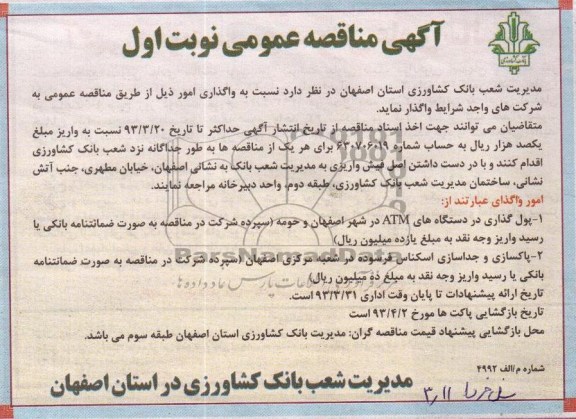 آگهی مناقصه عمومی نوبت اول
مدیریت شعب بانک کشاورزی استان اصفهان در نظر دارد نسبت به واگذاری امور ذیل از طریق مناقصه عمومی به
شرکت های واجد شرایط واگذار نماید.
متقاضیان می توانند جهت اخذ اسناد مناقصه از تاریخ انتشار آگهی حداکثر تا تاریخ ۹۳/۳/۲۰ نسبت به واریز مبلغ
یکصد هزار ریال به حساب شماره ۶۳۰۷۰۶۰۱۹ برای هر یک از مناقصه ها به طور جداگانه نزد شعب بانک کشاورزی
اقدام کنند و با در دست داشتن اصل فیش واریزی به مدیریت شعب بانک به نشانی اصفهان، خیابان مطهری، جنب آتش
نشانی، ساختمان مدیریت شعب بانک کشاورزی، طبقه دوم، واحد دبیرخانه مراجعه نمایند.
امور واگذای عبارتند از:
۱-پول گذاری در دستگاه های ATM در شهر اصفهان و حومه (سپرده شرکت در مناقصه به صورت ضمانتنامه بانکی یا
رسید واریز وجه نقد به مبلغ یازده میلیون ریال)
۲-پاکسازی و جداسازی اسکناس فرسوده در شعبه مرکزی اصفهان (سپرده شرکت در مناقصه به صورت ضمانتنامه
بانکی یا رسید واریز وجه نقد به مبلغ ده میلیون ریال)
تاریخ ارائه پیشنهادات تا پایان وقت اداری ۹۳/۳/۳۱ است.
تاریخ بازگشایی پاکت ها مورخ ۹۳/۴/۲ است
محل بازگشایی پیشنهاد قیمت مناقصه گران: مدیریت بانک کشاورزی استان اصفهان طبقه سوم می باشد.
شماره م/الف ۴۹۹۲
مدیریت شعب بانک کشاورزی در استان اصفهان
۳٫۱۱